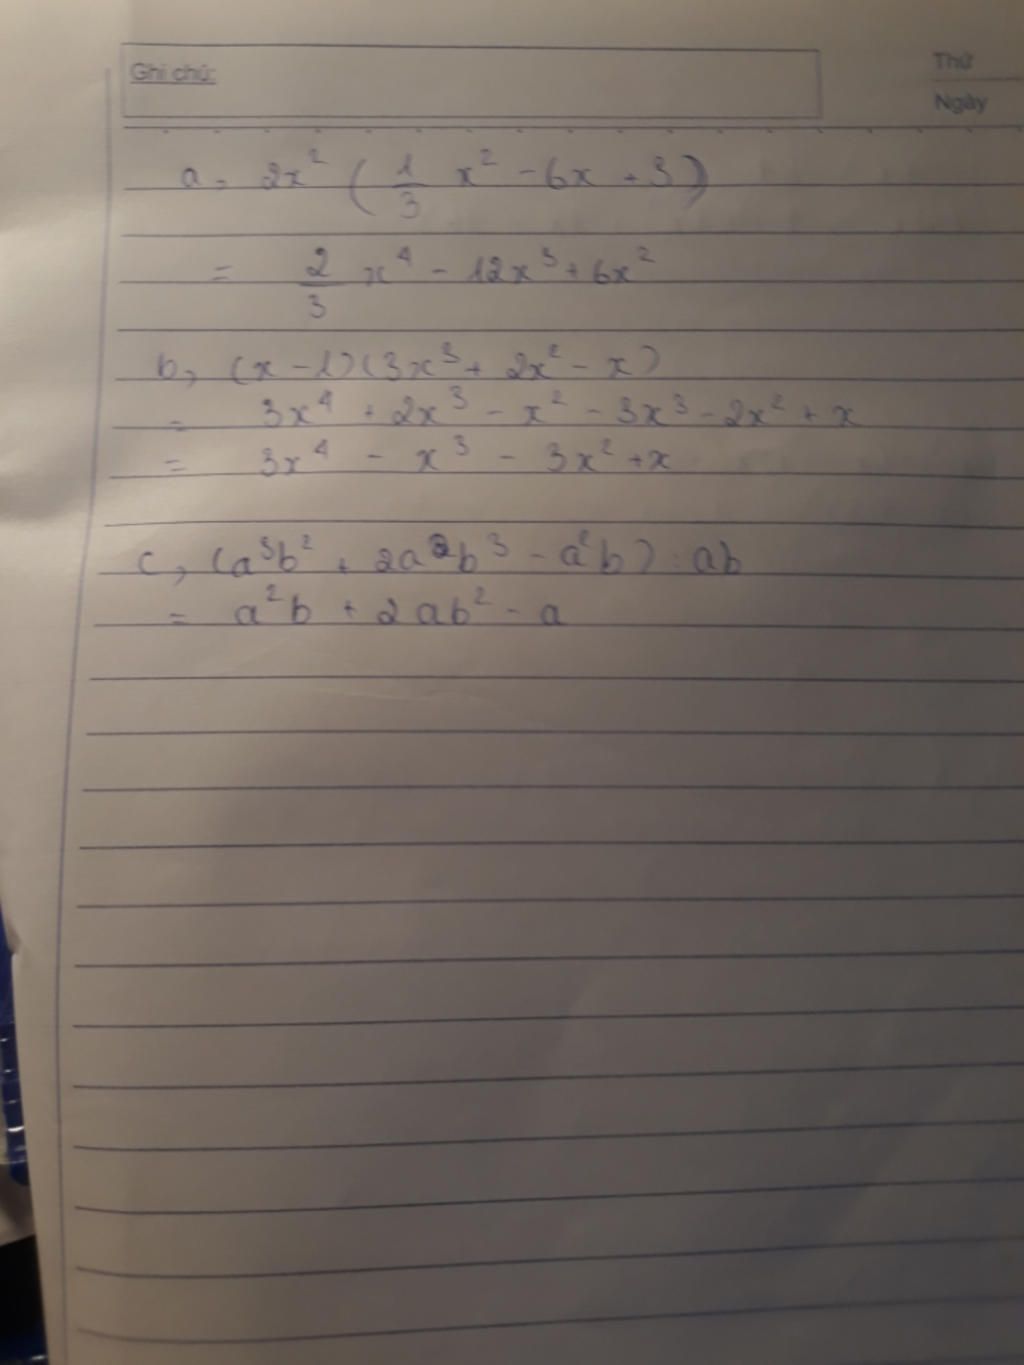 Ghi chú:
Thứ
Ngày
a, 2x² ( 1/3 x² - 6x + 3 )
= 2/3 x⁴ - 12x³ + 6x²
b, (x - 1)(3x³ + 2x² - x)
= 3x⁴ + 2x³ - x² - 3x³ - 2x² + x
= 3x⁴ - x³ - 3x² + x
c, (a³b² + 2a²b³ - a²b) : ab
= a²b + 2ab² - a